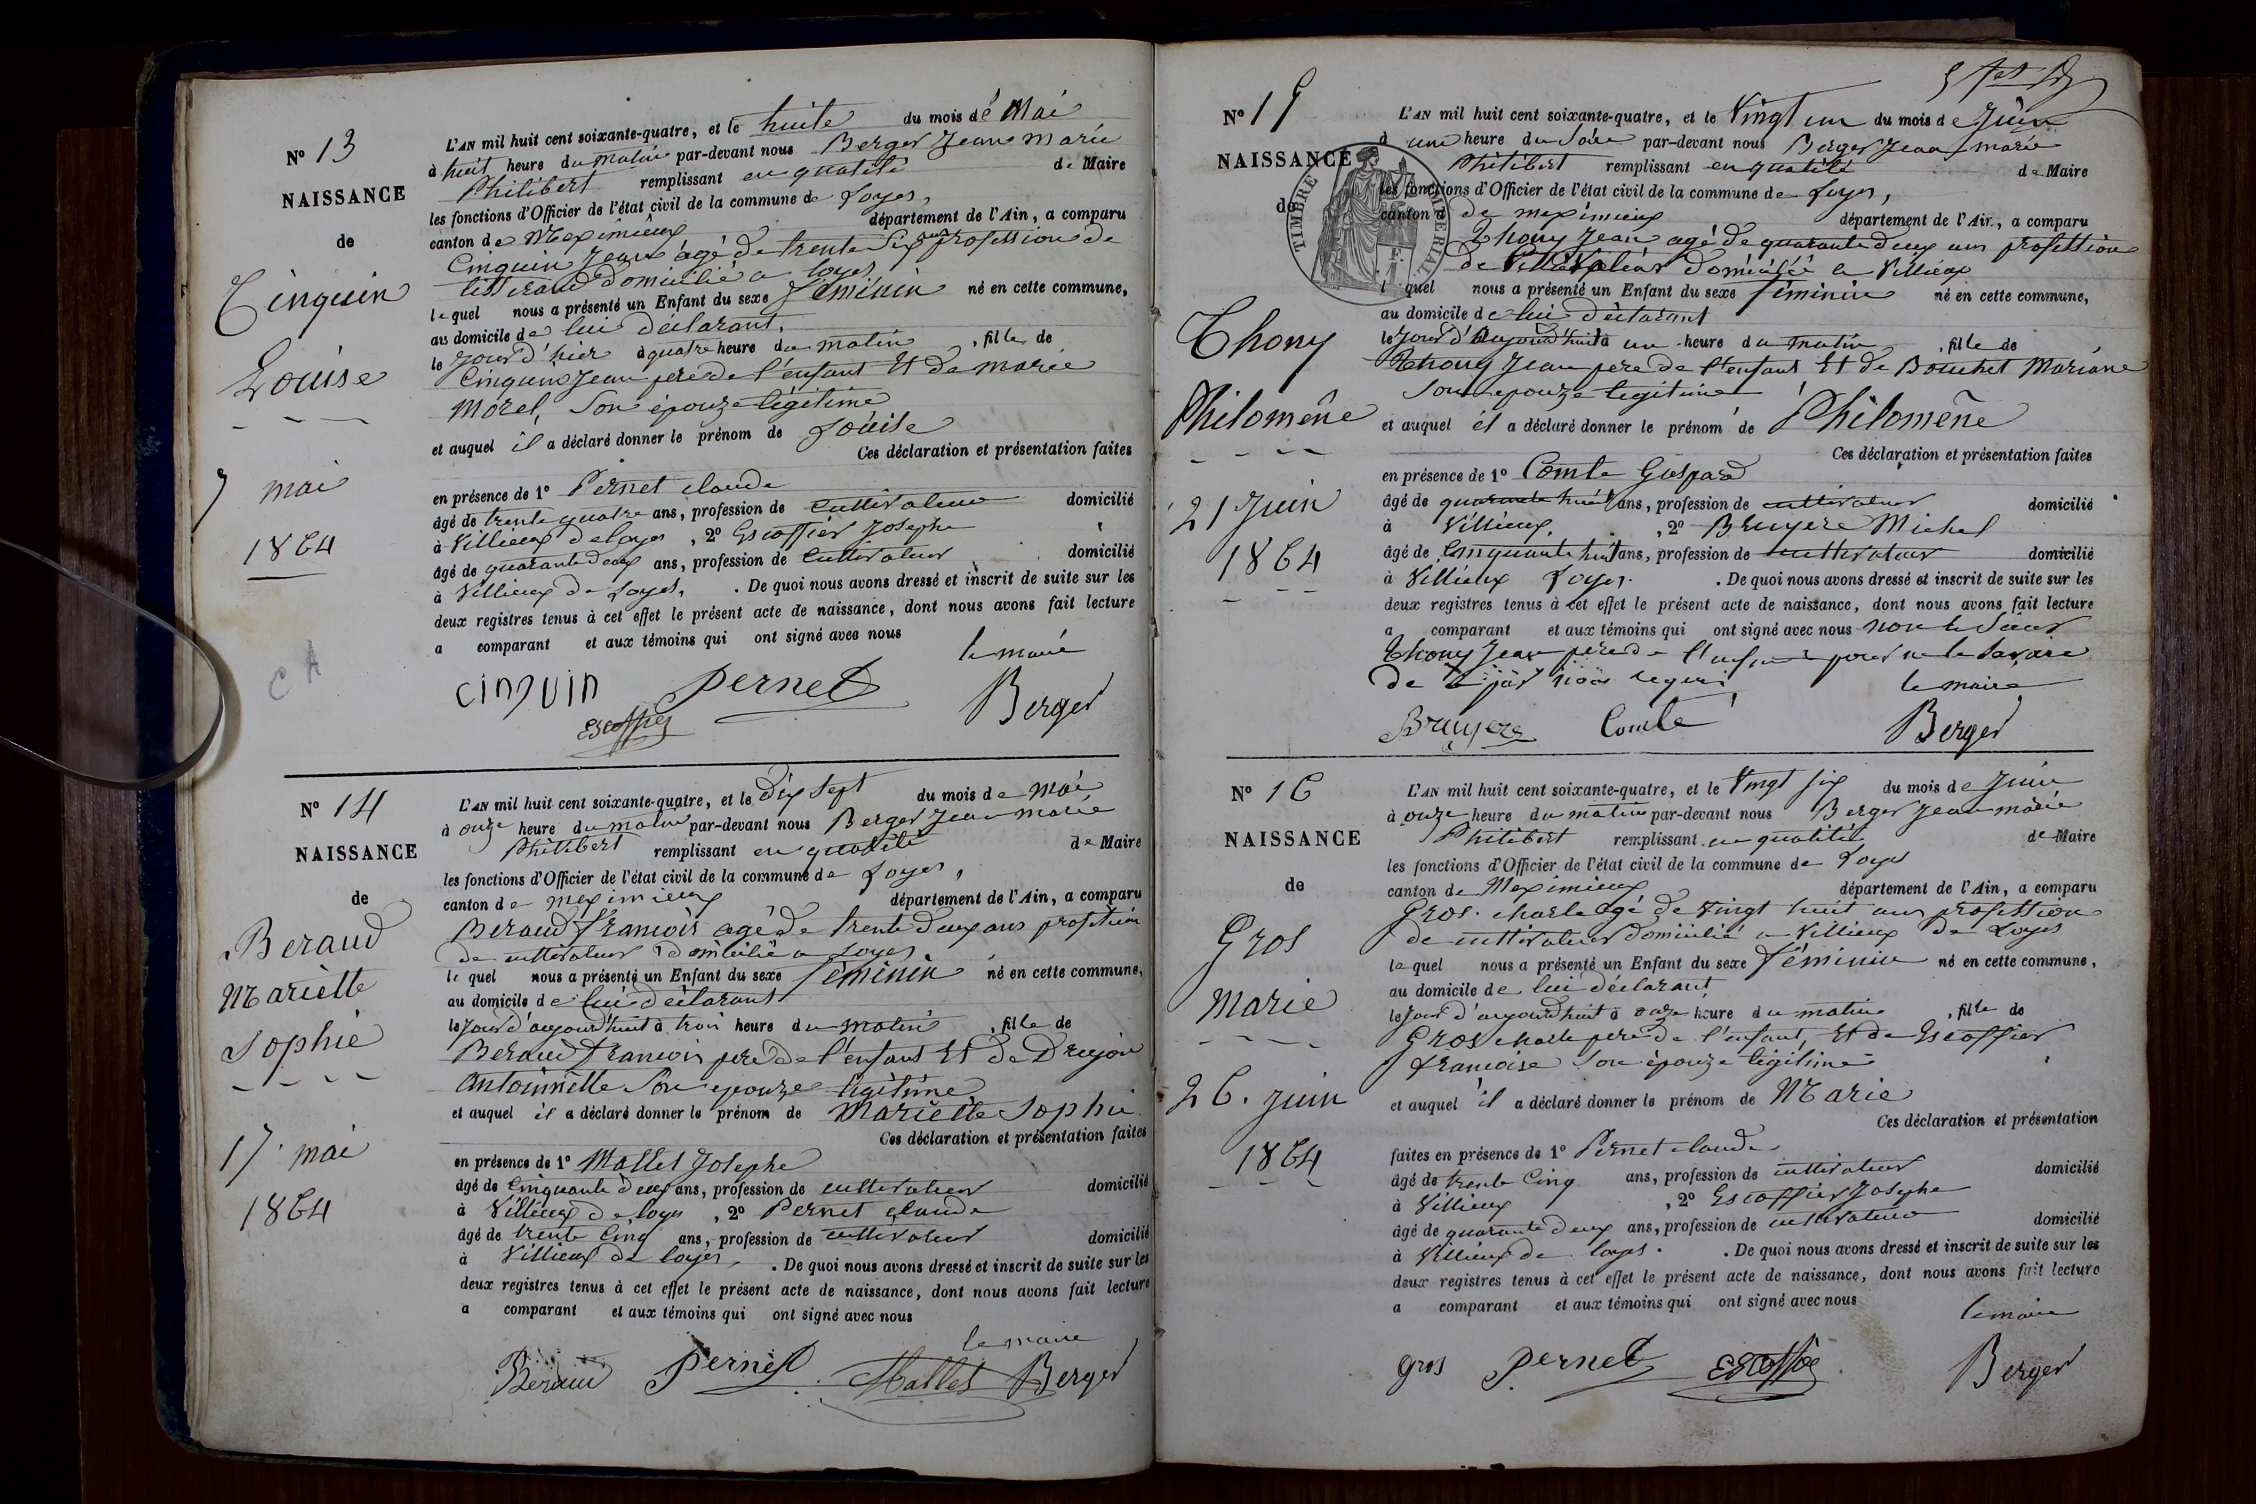 N° 13
NAISSANCE
de
Cinquin
Louise
7 mai
1864
L'AN mil huit cent soixante-quatre, et le huite du mois de Mai
à huit heure du matin par-devant nous Berger Jean Marie
Philibert remplissant en qualité de Maire
les fonctions d'Officier de l'état civil de la commune de Loyes,
canton de Meximieux département de l'Ain, a comparu
Cinquin Jean âgé de trente six ans profession de
tisserand domicilié a Loyes
lequel nous a présenté un Enfant du sexe féminin né en cette commune,
au domicile de lui déclarant,
le jour d'hier à quatre heure du matin, fille de
Cinquin Jean père de l'enfant Et de Marie
Morel, Son épouze légitime
et auquel il a déclaré donner le prénom de Louise
Ces déclaration et présentation faites
en présence de 1° Pernet claude
âgé de trente quatre ans, profession de cultivateur domicilié
à Villieux de Loyes, 2° Escoffier Josephe
âgé de quarante deux ans, profession de cultivateur domicilié
à Villieux de Loyes, . De quoi nous avons dressé et inscrit de suite sur les
deux registres tenus à cet effet le présent acte de naissance, dont nous avons fait lecture
a comparant et aux témoins qui ont signé avec nous
le maire
cinquin Pernet Berger
Escoffier
C A
N° 14
NAISSANCE
de
Beraud
Mariette
Sophie
17 mai
1864
L'AN mil huit cent soixante-quatre, et le dix sept du mois de mai
à onze heure du matin par-devant nous Berger Jean marie
Philibert remplissant en qualité de Maire
les fonctions d'Officier de l'état civil de la commune de Loyes,
canton de meximieux département de l'Ain, a comparu
Beraud francois agé de trente deux ans profession
de cultivateur domicilié a Loyes
lequel nous a présenté un Enfant du sexe féminin né en cette commune,
au domicile de lui déclarant
le jour d'aujourd'huit à trois heure du matin, fille de
Beraud francois père de l'enfant Et de Drujon
Antoinnette Son epouze légitime
et auquel il a déclaré donner le prénom de Mariette Sophie
Ces déclaration et présentation faites
en présence de 1° Mallet Josephe
âgé de cinquante deux ans, profession de cultivateur domicilié
à Villieux de loyes, 2° Pernet claude
âgé de trente cinq ans, profession de cultivateur domicilié
à Villieux de loyes, . De quoi nous avons dressé et inscrit de suite sur les
deux registres tenus à cet effet le présent acte de naissance, dont nous avons fait lecture
a comparant et aux témoins qui ont signé avec nous
le maire
Beraud Pernet Mallet Berger
N° 15
NAISSANCE
de
TIMBRE IMPERIAL
Thony
Philomène
21 Juin
1864
L'AN mil huit cent soixante-quatre, et le Vingt un du mois de Juin
à une heure du Soir par-devant nous Berger Jean marie
Philibert remplissant en qualité de Maire
les fonctions d'Officier de l'état civil de la commune de Loyes,
canton d de meximieux département de l'Ain, a comparu
Thony Jean agé de quarante deux ans profession
de cultivateur domicilié a Villieux
l quel nous a présenté un Enfant du sexe féminin né en cette commune,
au domicile de lui déclarant
le jour d'aujourd'huit à un heure du matin, fille de
Thony Jean père de l'enfant Et de Bouchet Mariane
Son epouze legitime
et auquel il a déclaré donner le prénom de Philomène
Ces déclaration et présentation faites
en présence de 1° Comte Gaspard
âgé de quarante huit ans, profession de cultivateur domicilié
à Villieux, 2° Bruyere Michel
âgé de Cinquante huit ans, profession de cultivateur domicilié
à Villieux Loyes. . De quoi nous avons dressé et inscrit de suite sur les
deux registres tenus à cet effet le présent acte de naissance, dont nous avons fait lecture
a comparant et aux témoins qui ont signé avec nous non le Sieur
Thony Jean père de l'enfant pour ne le Savoir
de requi
le maire
Bruyere Comte Berger
N° 16
NAISSANCE
de
Gros
Marie
26. juin
1864
L'AN mil huit cent soixante-quatre, et le Vingt six du mois de Juin
à onze heure du matin par-devant nous Berger Jean marie
Philibert remplissant en qualité de Maire
les fonctions d'Officier de l'état civil de la commune de Loyes
canton de Meximieux département de l'Ain, a comparu
Gros. charle agé de vingt huit ans profession
de cultivateur domicilié a Villieux de Loyes
lequel nous a présenté un Enfant du sexe féminin né en cette commune,
au domicile de lui déclarant
le jour d'aujourd'huit à onze heure du matin, fille de
Gros charle père de l'enfant, Et de Escoffier
francoise Son épouze légitime
et auquel il a déclaré donner le prénom de Marie
Ces déclaration et présentation
faites en présence de 1° Pernet claude
âgé de trente cinq ans, profession de cultivateur domicilié
à Villieux, 2° Escoffier Josephe
âgé de quarante deux ans, profession de cultivateur domicilié
à Villieux de loyes. . De quoi nous avons dressé et inscrit de suite sur les
deux registres tenus à cet effet le présent acte de naissance, dont nous avons fait lecture
a comparant et aux témoins qui ont signé avec nous
le maire
gros Pernet Escoffier Berger